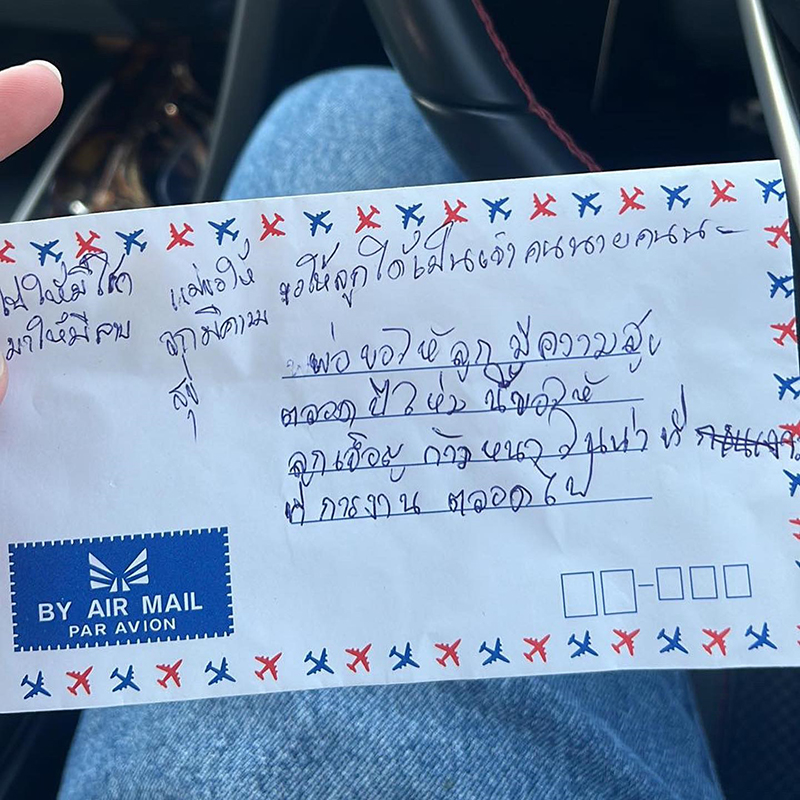 ไปให้มีโชค
มาให้มีลาภ
แม่ขอให้
ลูกมีความ
สุข
ขอให้ลูกได้เป็นเจ้าคนนายคนนะ
พ่อขอให้ลูกมีความสุข
ตลอดปีใหม่นี้ขอให้
ลูกเจริญก้าวหน้าในหน้าที่
ที่การงานตลอดไป
BY AIR MAIL
PAR AVION